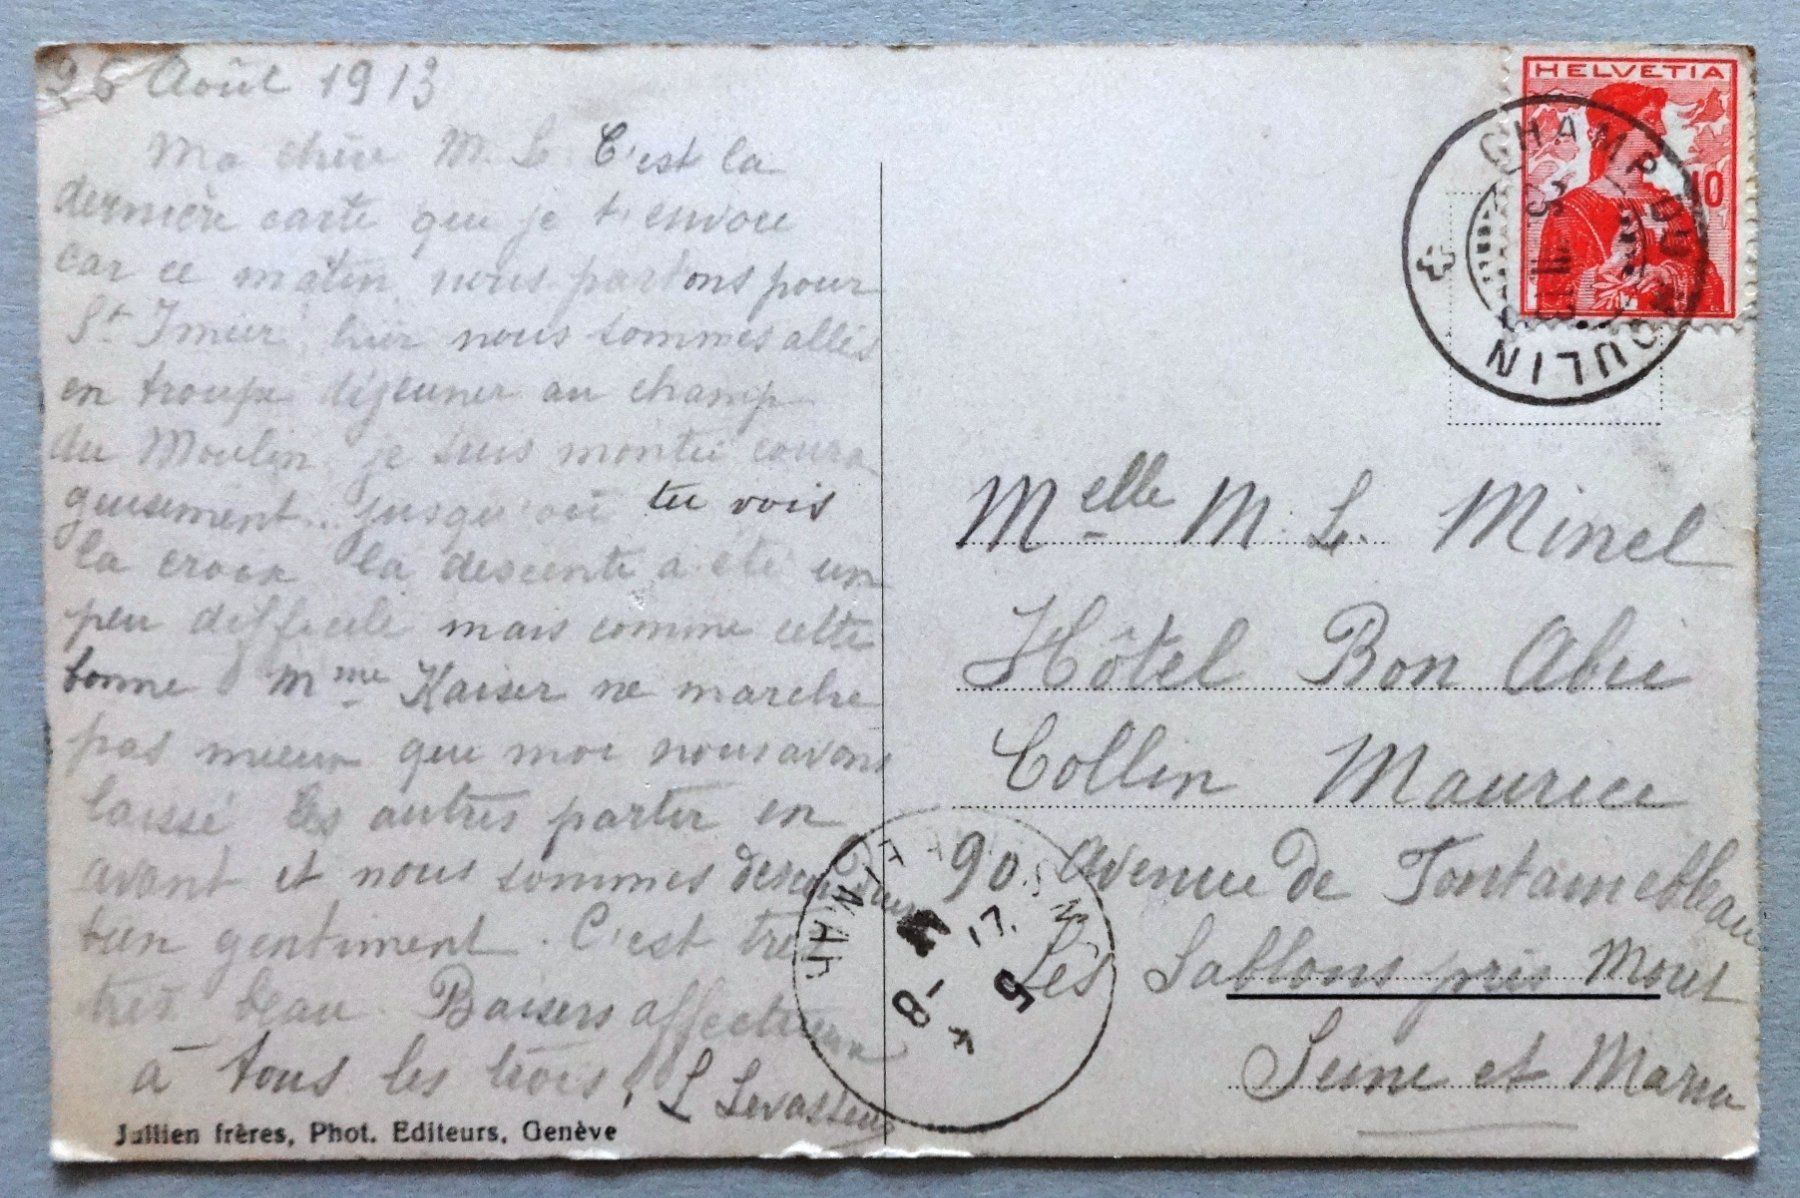 26 Août 1913
Ma chère M. L. C'est la
dernière carte que je t'envoie
car ce matin nous partons pour
St Imier, hier nous sommes allés
en troupe déjeuner au champ
du Moulin, je suis montée coura
geusement.. jusqu'où tu vois
la croix la descente a été un
peu difficile mais comme cette
bonne Mme Kaiser ne marche
pas mieux que moi nous avons
laissé les autres partir en
avant et nous sommes descendues
bien gentiment. C'est très
très beau. Baisers affectueux
à tous les trois. L Levasseur
Jullien frères, Phot. Editeurs, Genève
HELVETIA
10
CHAMP DU MOULIN
Melle M. L. Minel
Hôtel Bon Abri
Collin Maurice
90 Avenue de Fontainebleau
Les Sablons près Moret
Seine et Marne
8 - 17
9